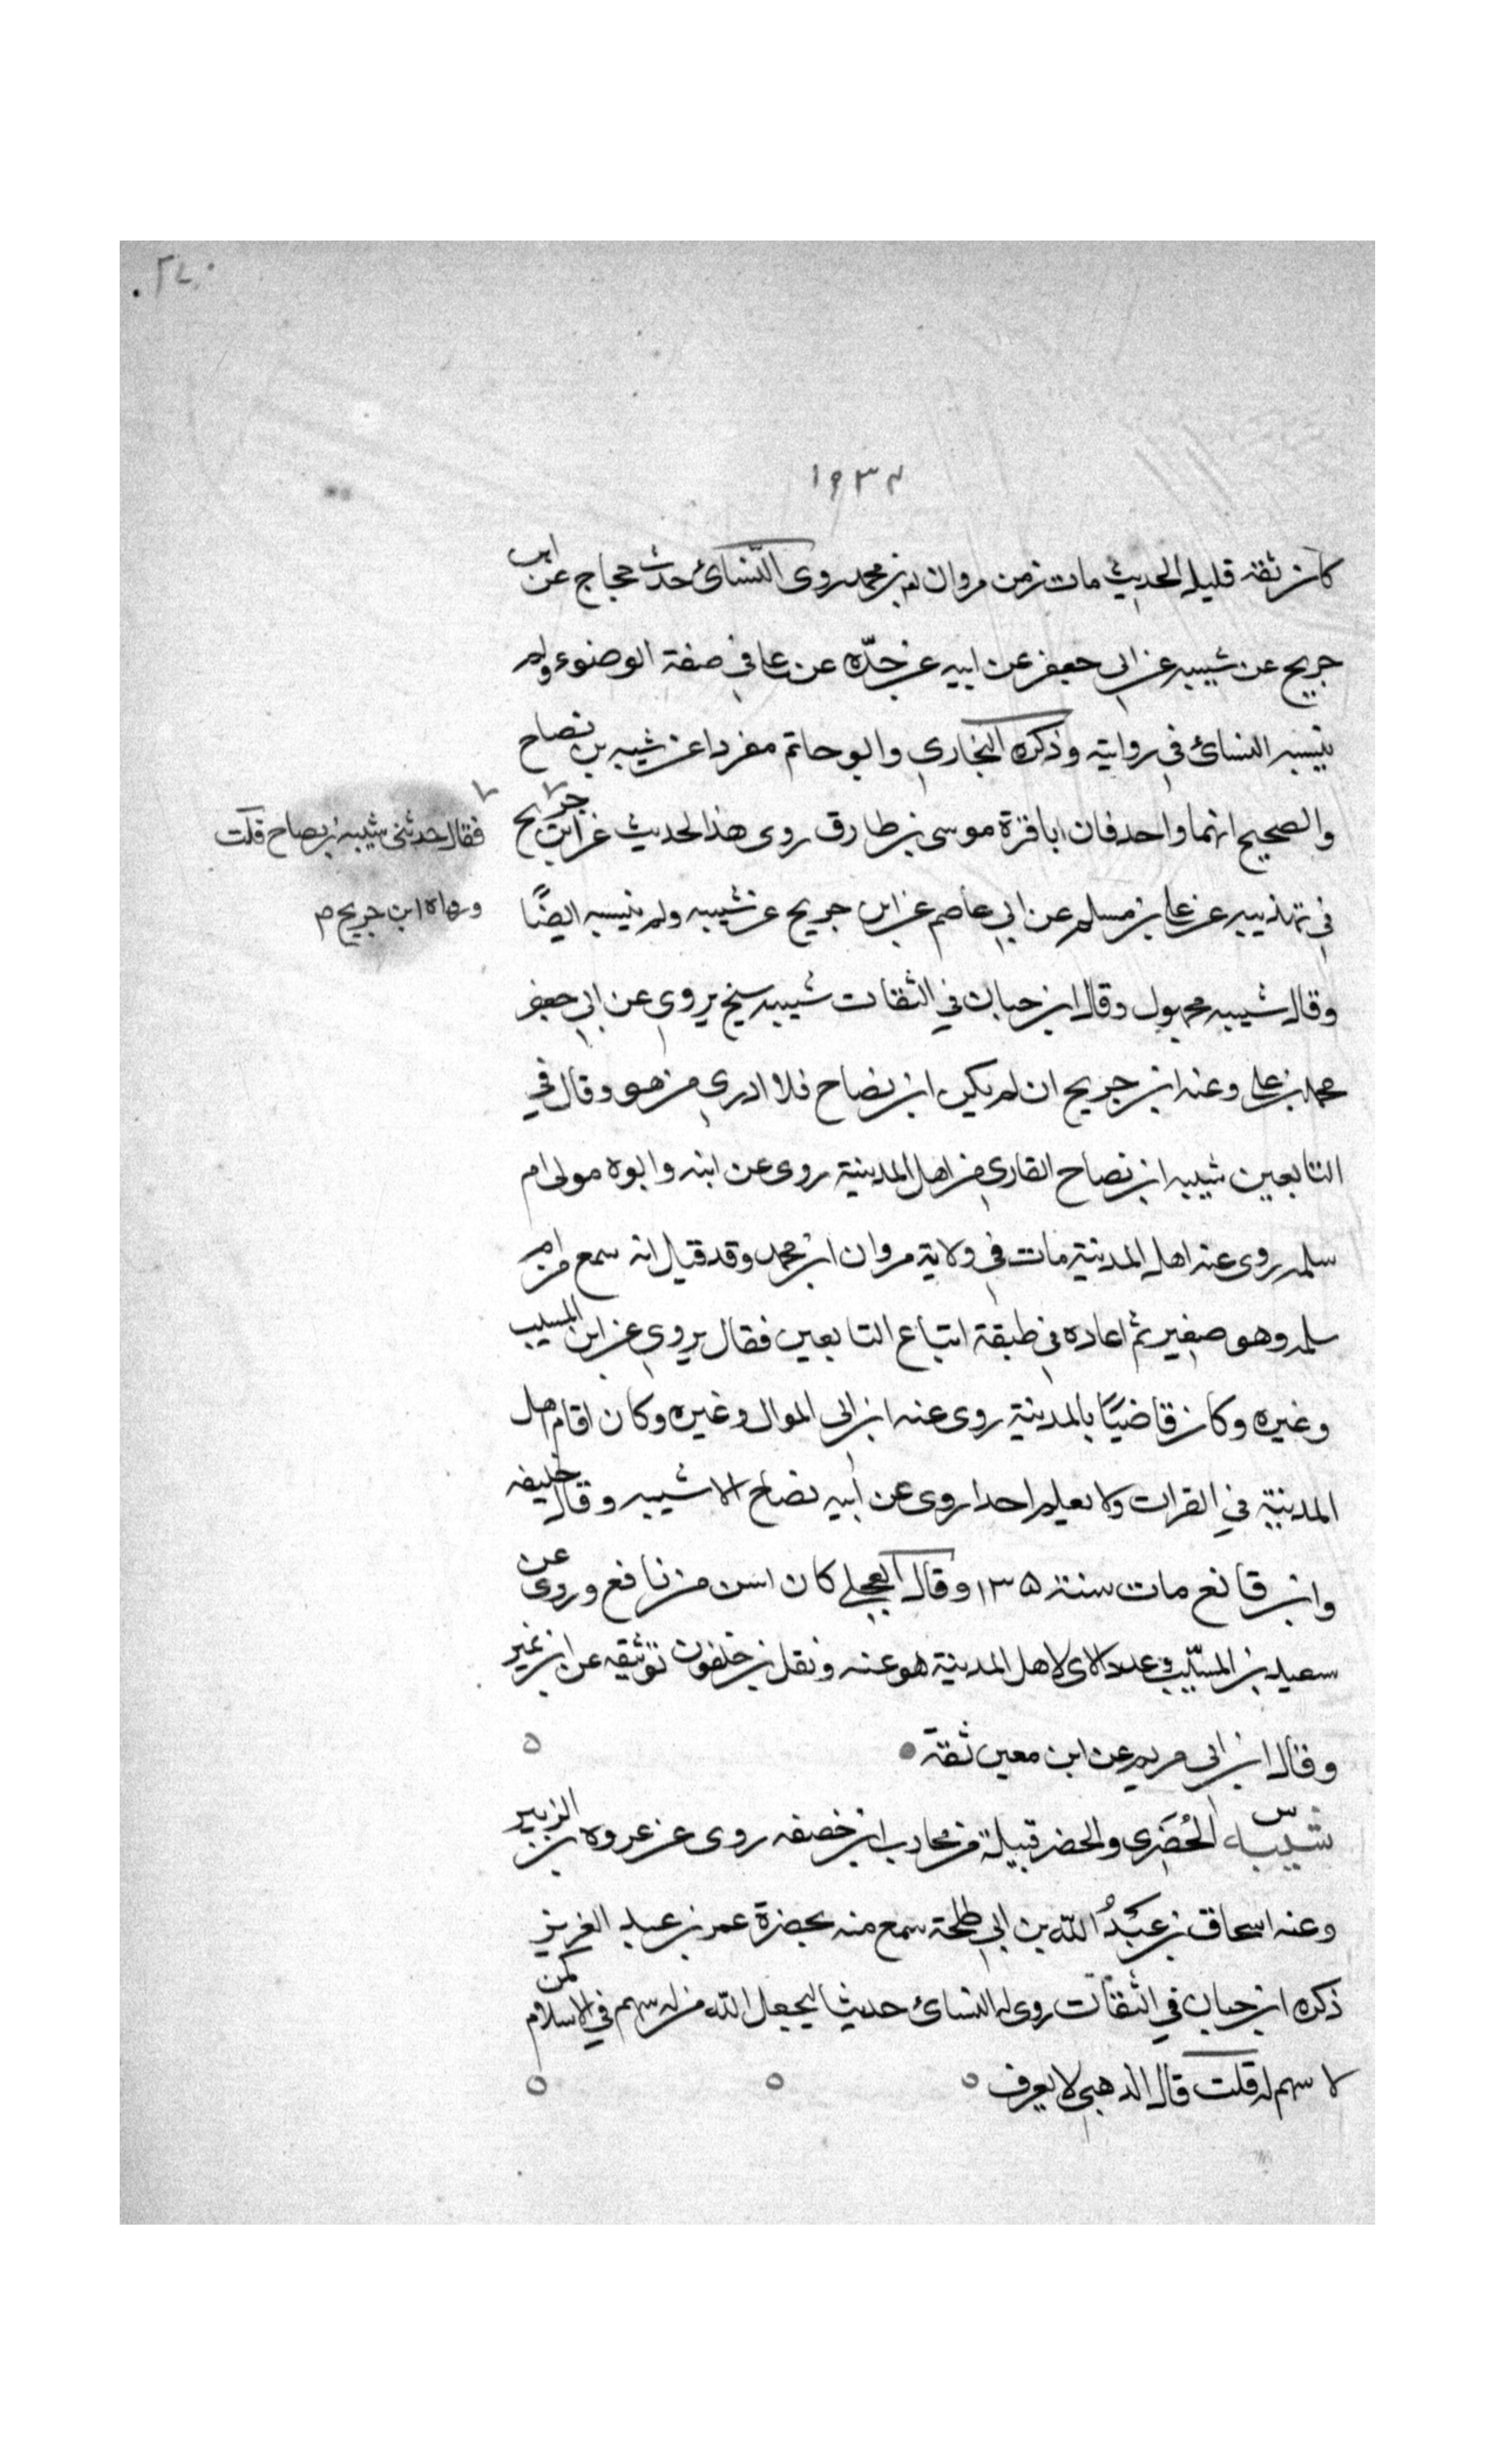 ١٩٣٤
كان ثقة قليل الحديث مات زمن مروان بن محمد روى النسائ حديث حجاج عن ابن
جريج عن شيبه عن ابى جعفر عن ابيه عن جدّه عن على في صفة الوضوء ولم
ينسبه النسائ في روايته وذكره البخاري وابو حاتم مفردا عن شيبه بن نصاح
والصحيح انهما واحد فان ابا قرة موسى بن طارق روى هذا الحديث عن ابن جريج
فقال حدثنى شيبه بن نصاح قلت
ورواه ابن جرير م
في تهذيبه عن على بن مسلم عن ابي عاصم عن ابن جريج عن شيبه ولم ينسبه ايضًا
وقال شيبه مجهول وقال ابن حبان في الثقات شيبه شيخ يروي عن ابي جعفر
محمد بن على وعنه ابن جريج ان لم يكن ابن نصاح فلا ادري من هو وقال في
التابعين شيبه ابن نصاح القاري من اهل المدينة روى عن ابنه وابوه مولى ام
سلمه روى عنه اهل المدينة مات في ولاية مروان ابن محمد وقد قيل انه سمع من ام
سلمه وهو صغير ثم اعاده في طبقة اتباع التابعين فقال يروي عن ابن المسيب
وغيره وكان قاضيًا بالمدينة روى عنه ابن ابى الموال وغيره وكان امام اهل
المدينة في القرات ولا يعلم احدا روى عن ابيه نصاح الا شيبه وقال خليفه
وابن قانع مات سنة ١٣٥ وقال العجلي كان اسن من نافع وروى عن
سعيد بن المسيّب في عدد الاى لاهل المدينة هو عنه ونقل بن خلفون توثيقه عن ابن نمير
وقال ابن ابى مريم عن ابن معين ثقة
س
شيبه الخُضَري والخضر قبيلة من محارب ابن خصفه روى عن عروه بن الزبير
وعنه اسحاق بن عَبْدُ الله بن ابي طلحة سمع منه بحضرة عمر بن عبد العزيز
ذكره ابن حبان في الثقات روى له النسائ حديثا ليجعل الله من له سهم في الاسلام كمن
لا سهم له قلت قال الذهبي لا يعرف